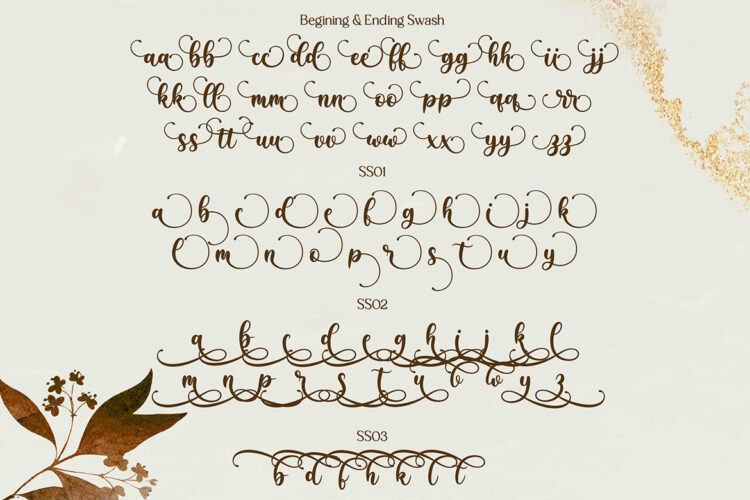 Begining & Ending Swash
aa bb cc dd ee ff gg hh ii jj
kk ll mm nn oo pp qq rr
ss tt uu vv ww xx yy zz
SS01
a b c d e f g h i j k
l m n o p r s t u y
SS02
a b c d e g h i j k l
m n p r s t u v w y z
SS03
b d f h k l t